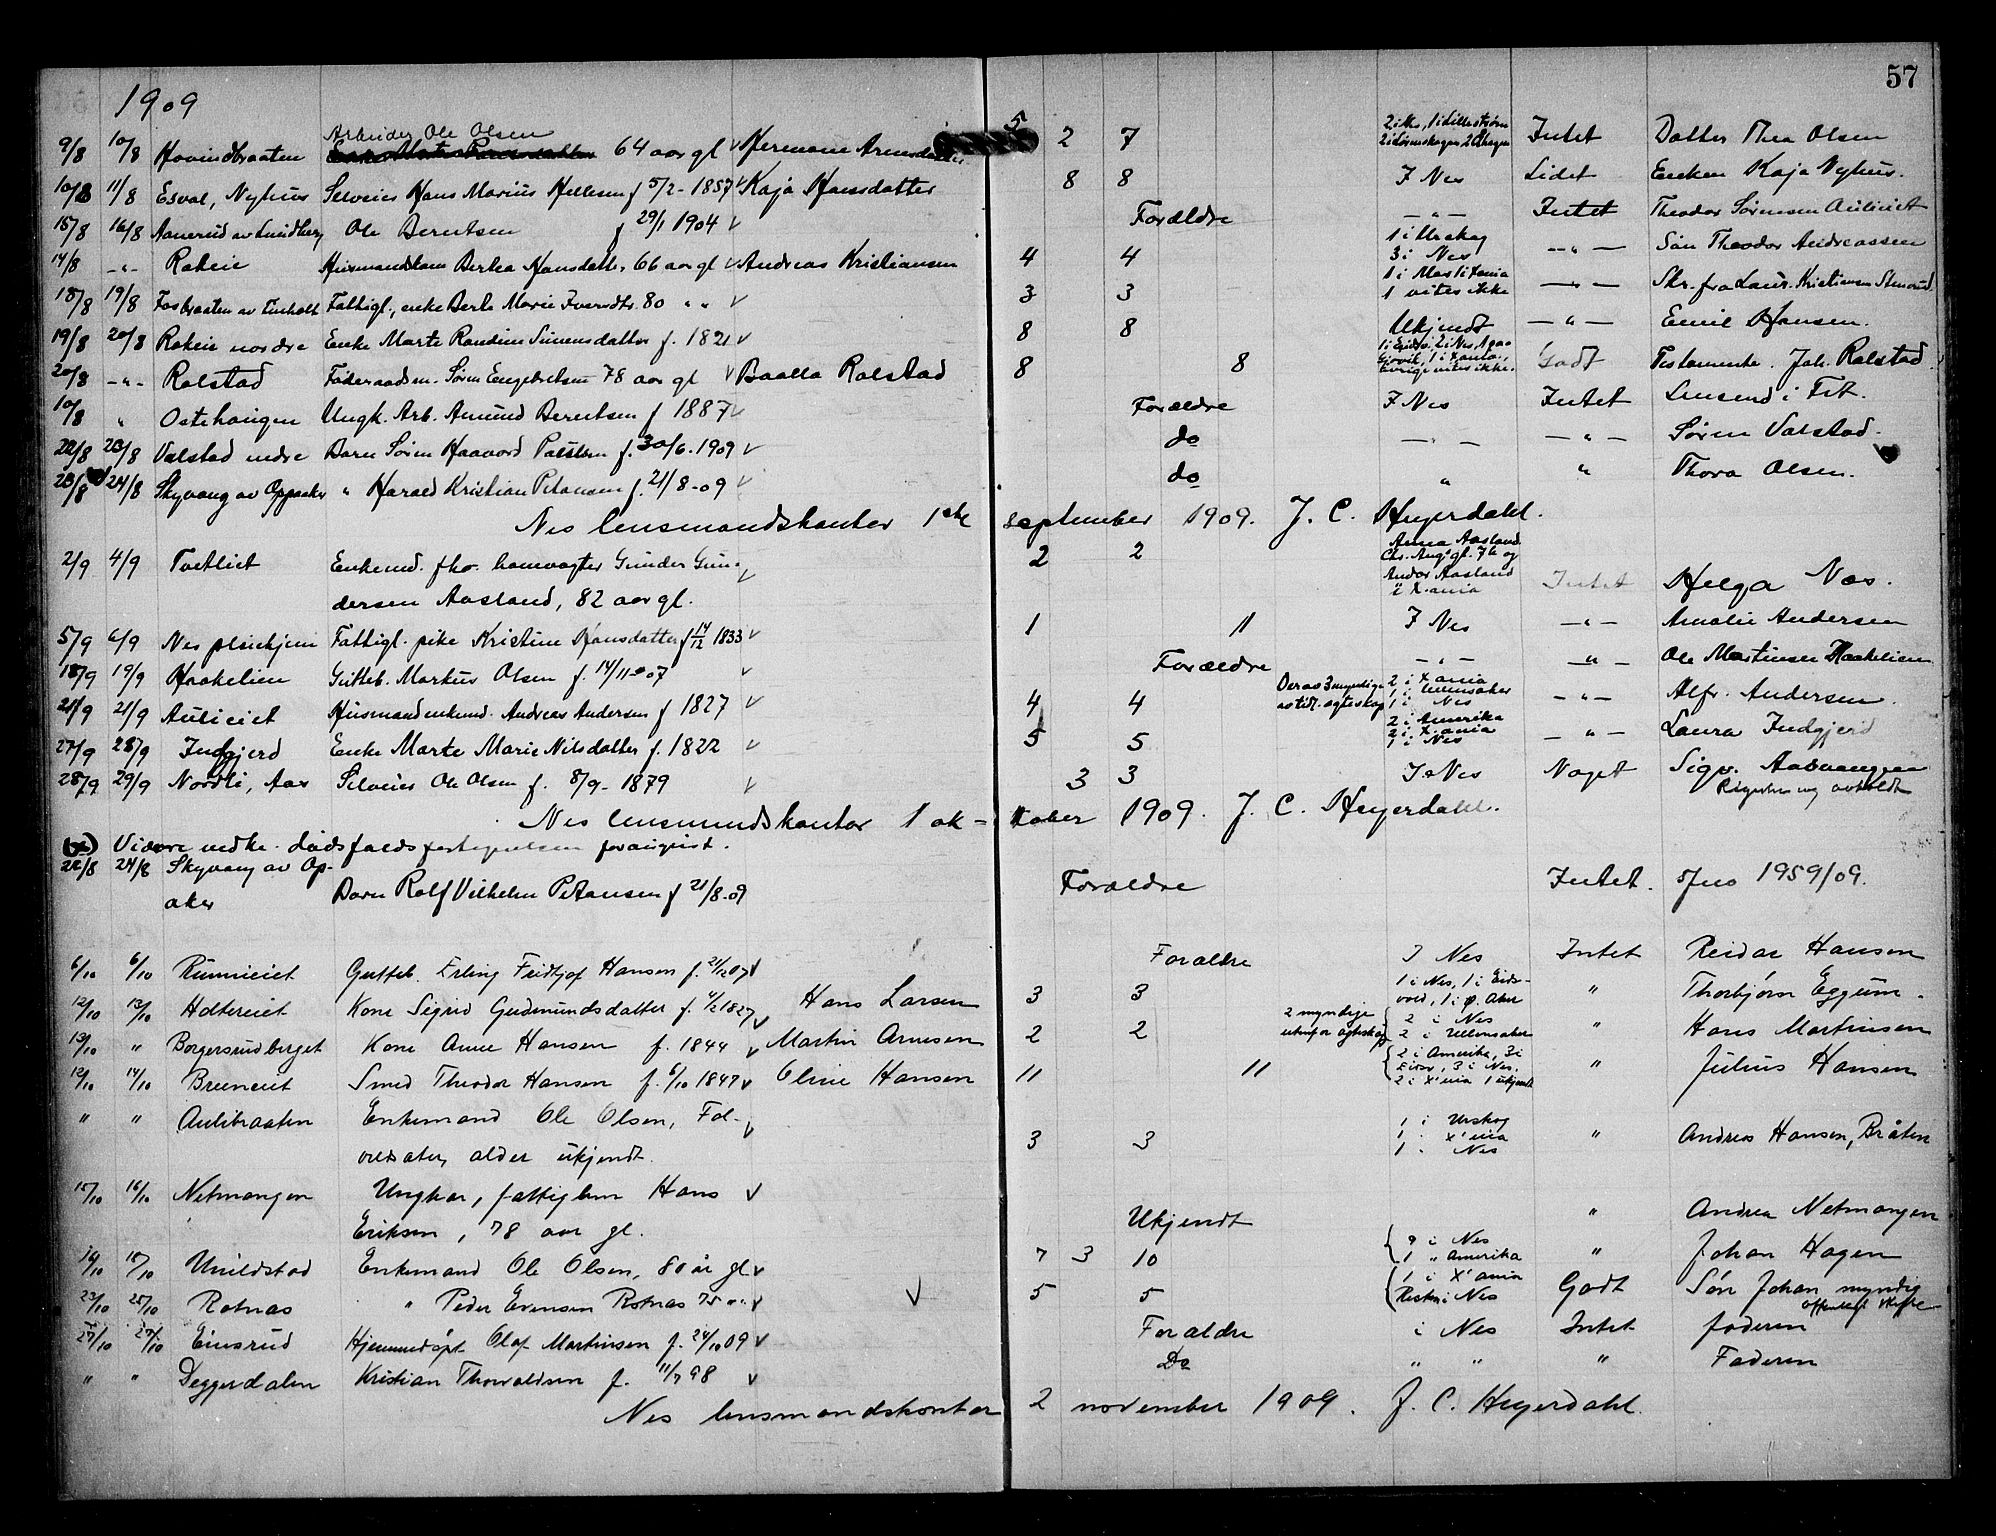 57
1909
9/8 10/8 Hovindbraaten Arbeider Ole Olsen 64 aar gl Hermane Arnesdatter 5 2 7 Intet Datter Thea Olsen
10/8 11/8 Esval, Nyhus Selveier Hans Marius Hellesen f 5/2-1857 Kaja Hansdatter 8 8 I Nes Lidet Enken Kaja Nyhus.
15/8 16/8 Aanerud av Lundberg Ole Berntsen f 29/1 1904 Forældre — " — Intet Theodor Sørensen Aulieiet
14/8 — " — Rakeie Husmandskone Berthe Hansdatter 66 aar gl Andreas Kristiansen 4 4 1 i Urskog 3 i Nes — " — Søn Theodor Andreassen
18/8 19/8 Fosbraaten av Fuholt Fattigl., enke Berte Marie Iversdtr. 80 " " 3 3 1 vites ikke — " — Skr. fra Laur. Kristiansen
19/8 20/8 Rakeie nordre Enke Marte Randine Simensdatter f. 1821 8 8 Ukjendt — " — Emil Hansen.
20/8 — " — Ralstad Føderaadsm. Søren Engebretsen 78 aar gl Baalla Ralstad 8 8 Godt Testamente. Joh. Ralstad
10/8 " Ostehaugen Ungk. Arb. Amund Berntsen f 1887 Forældre I Nes Intet Lensmd i Fet.
22/8 23/8 Valstad nedre Barn Søren Haavard Paulsen f. 30/6-1909 do — " — — " — Søren Valstad.
23/8 24/8 Skyvang av Oppaker " Harald Kristian Petersen f. 21/8-09 do " " Thora Olsen.
Nes lensmandskontor 1ste september 1909. J. C. Heyerdahl.
2/9 4/9 Tvetliet Enkemd. fhv. banevogter Gunder Gun- 2 2 Anna Aasland Chr. Aug's gt. 76 og
dersen Aasland, 82 aar gl. Andor Aasland i X.ania Intet Helga Næs.
5/9 6/9 Nes pleiehjem Fattigl. pike Kristine Hansdatter f 14/12 1833 1 11 I Nes — " — Amalie Andersen
18/9 19/9 Haakelien Guteb. Markus Olsen f. 14/11-07 Forældre — " — — " — Ole Martinsen Haakelien
21/9 21/9 Auliciet Husmandenkemd. Andreas Andersen f 1827 4 4 Derav 3 myndige 2 i X.ania 1 i Ullensaker 1 i Nes — " — Alfr. Andersen.
27/9 28/9 Indgjerd Enke Marte Marie Nilsdatter f. 1822 5 5 2 i Amerika 2 i X.ania 1 i Nes — " — Laura Indgjerd
28/9 29/9 Nordli, Aas Selveier Ole Olsen f. 8/9-1879 3 3 I Nes Noget Sigv. Aasvangen
Registrering avholdt
Nes lensmandskontor 1 oktober 1909. J. C. Heyerdahl.
(x) Videre vedk. dødsfaldsfortegnelsen for august.
22/8 24/8 Skyvang av Op-
aker Barn Rolf Vilhelm Petersen f 21/8-09 Forældre Intet. Jno 1959/09.
6/10 6/10 Runnieiet Gutteb. Erling Fridtjof Hansen f. 21/12 07 Forældre I Nes Intet Reidar Hansen
12/10 13/10 Holtereiet Kone Sigrid Gudmundsdatter f. 4/2 1827 Hans Larsen 3 3 1 i Nes, 1 i Eids-
vold, 1 i ø. Aker " Thorbjørn Eggum.
13/10 " Borgersrudberget Kone Anne Hansen f. 1844 Martin Arnesen 2 2 2 myndige utenfor ægteskap 2 i Nes 2 i Ullensaker " Hans Martinsen
12/10 14/10 Bruneiet Smed Theodor Hansen f. 6/10 1847 Oline Hansen 11 11 2 i Amerika, 3 i Eidsv, 3 i Nes, 2 i X'ania 1 ukjendt " Julius Hansen
" " Aulibraaten Enkemand Ole Olsen, Fol-
alder ukjendt. 3 3 1 i Urskog 1 " X'ania 1 " Nes " Andreas Hansen, Bråten
15/10 16/10 Netmangen Ungkar, fattiglem Hans
Eriksen, 78 aar gl. Ukjendt " Andrea Netmangen
16/10 18/10 Uvildstad Enkemand Ole Olsen, 80 år gl 7 3 10 9 i Nes 1 " Amerika " Johan Hagen
23/10 25/10 Rotnæs " Peder Evensen Rotnæs 75 " " 5 5 1 i X'ania Resten i Nes Godt Søn Johan myndig
offentlig skifte
27/10 27/10 Einsrud Hjemmedøpt Olaf Martinsen f. 24/10 09 Forældre i Nes Intet faderen
" " Deggerdalen Kristian Thorvaldsen f. 11/7 98 Do " " " Faderen
Nes lensmandskontor 2 november 1909. J. C. Heyerdahl.